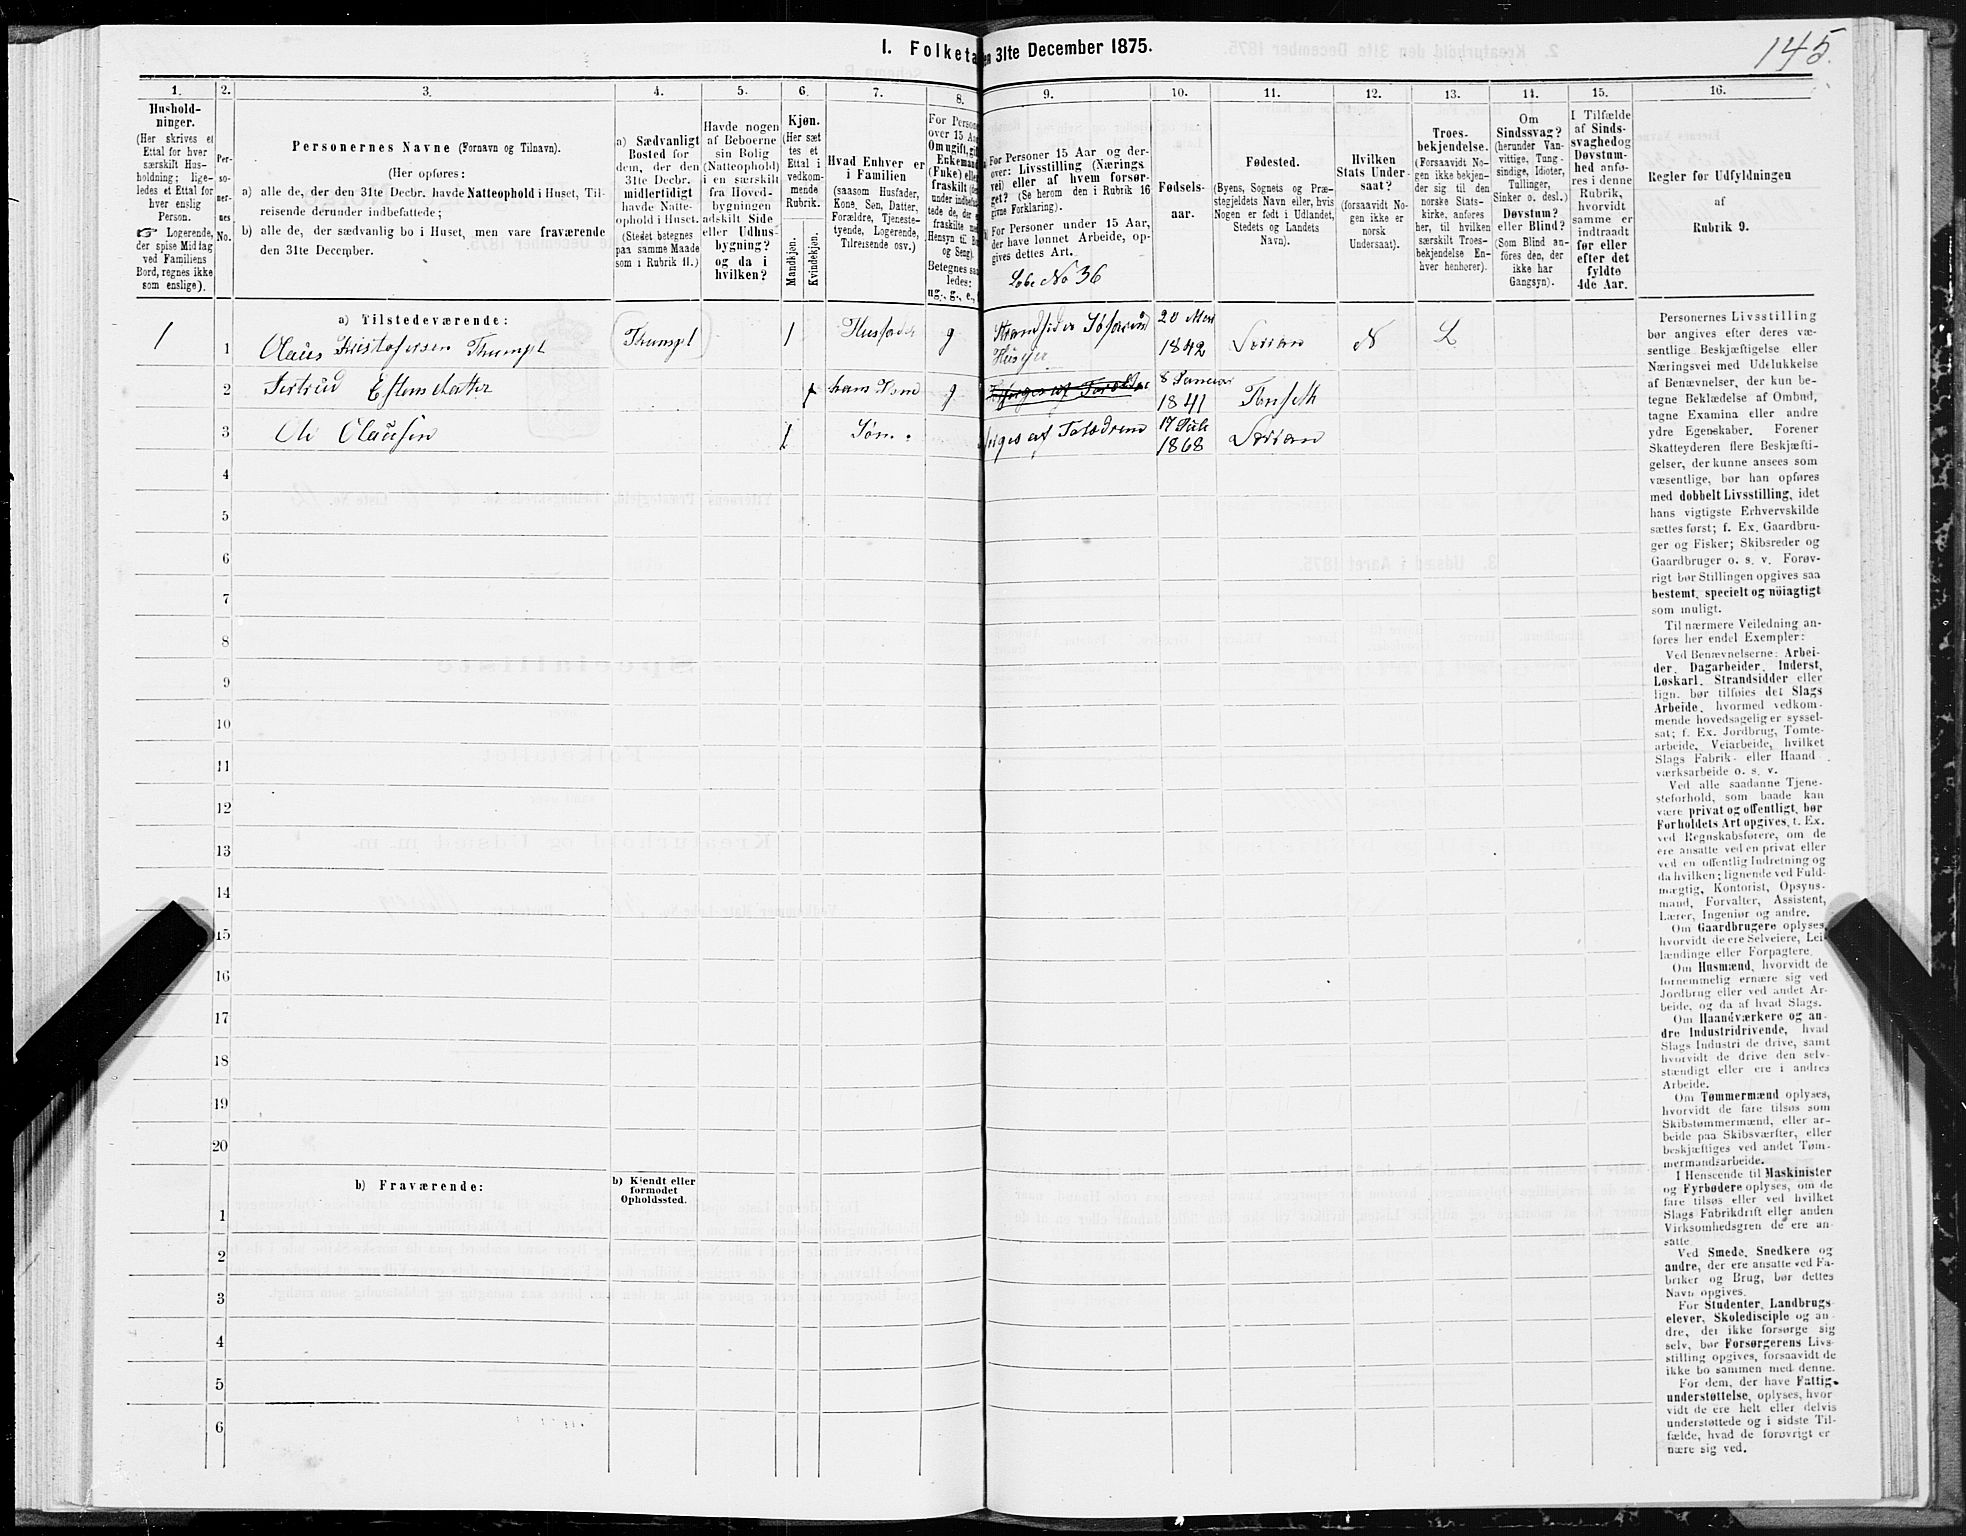 I. Folketa en 31te December 1875.
145.
1.
2.
3.
4.
5.
6.
7.
8.
9.
10.
11.
12.
13.
14.
15.
16.
Hushold-
ninger.
(Her skrives et
Ettal for hver
særskilt Hus-
holdning; lige-
ledes et Ettal for
hver enslig
Person.
☞ Logerende,
der spise Middag
ved Familiens
Bord, regnes ikke
som enslige).
Per-
so-
ner-
nes
No.
Personernes Navne (Fornavn og Tilnavn).
(Her opføres:
a) alle de, der den 31te Decbr. havde Natteophold i Huset, Til-
reisende derunder indbefattede;
b) alle de, der sædvanlig bo i Huset, men vare fraværende
den 31te December.
a) Sædvanligt
Bosted for
dem, der den
31te Decbr.
midlertidigt
havde Natte-
ophold i Huset.
(Stedet betegnes
paa samme Maade
som i Rubrik 11.)
Havde nogen
af Beboerne
sin Bolig
(Natteophold)
i en særskilt
fra Hoved-
bygningen
adskilt Side
eller Udhus-
bygning?
og da i
hvilken?
Kjøn.
(Her sæt
tes et
Ettal i
vedkom-
mende
Rubrik.
Mandkjøn.
Kvindekjøn.
Hvad Enhver er
i Familien
(saasom Husfader,
Kone, Søn, Datter,
Forældre, Tjeneste-
tyende, Logerende,
Tilreisende osv.)
For Persone
over 15 Aa
Om ugift, gif
Enkemand
(Enke) elle
fraskilt
Hensyn til B
og Seng).
Betegnes saa
ledes:
ug., g., e.,
For Personer 15 Aar og der-
over: Livsstilling (Nærings
vei) eller af hvem forsør-
get? (Se herom den i Rubrik 16
givne Forklaring).
For Personer under 15 Aar,
der have lønnet Arbeide, op-
gives dettes Art.
Lobe No 36
Fødsels-
aar.
Fødested.
(Byens, Sognets og Præ-
stegjeldets Navn eller, hvis
Nogen er født i Udlandet,
Stedets og Landets
Navn).
Hvilken
Stats Under-
saat?
(forsaavidt No-
gen ikke er
norsk
Undersaat).
Troes-
bekjendelse.
(Forsaavidt No-
gen ikke bekjen-
der sig til den
norske Stats-
kirke, anføres
her, til hvilken
særskilt Troes-
bekjendelse En-
hver henhører).
Om
Sindssvag?
(herunder Van-
vittige, Tung-
sindige, Idioter,
Tullinger,
Sinker o. desl.)
Døvstum?
eller Blind?
(Som Blind an-
føres den, der
ikke har
Gangsyn).
I Tilfælde
af Sinds-
svaghed og
Døvstum-
hed anfø-
res i denne
Rubrik,
hvorvidt
samme er
indtraadt
før eller
efter det
fyldte
4de Aar.
Regler for Udfyldningen
af
Rubrik 9.
a) Tilstedeværende:
1
1
Olaus Kristofersen Thumpl
Thumpl
1
Husfader
g
Husejer
20
1842
N
L
2
g
1841
3
Ole Clausen
1
Søn
17 Juli
1868
4
5
6
7
8
9
10
11
12
13
14
15
16
17
18
19
20
b) Fraværende:
b) Kjendt eller
formodet
Opholdssted.
1
2
3
4
5
6
Personernes Livsstilling
bør angives efter deres væ-
sentlige Beskjæftigelse eller
Næringsvei med Udelukkelse
af Benævnelser, der kun be-
tegne Beklædelse af Ombud,
tagne Examina eller andre
ydre Egenskaber. Forener
Skatteyderen flere Beskjæfti-
gelser, der kunne ansees som
væsentlige, bør han opføres
med dobbelt Livsstilling, idet
hans vigtigste Erhvervskilde
sættes først; f. Ex. Gaardbru-
ger og Fisker; Skibsreder og
Gaardbruger o. s. v. Forøv-
rigt bør Stillingen opgives saa
bestemt, specielt og nøiagtigt
som muligt.
Til nærmere Veiledning an-
føres her endel Exempler:
Ved Benævnelserne: Arbei-
der, Dagarbeider, Inderst,
Løskarl, Strandsidder eller
lign. bør tilføies det Slags
Arbeide, hvormed vedkom-
mende hovedsagelig er syssel-
sat; f. Ex. Jordbrug, Tomte-
arbeide, Veiarbeide, hvilket
Slags Fabrik- eller Haand
værksarbeide o. s. v.
Ved alle saadanne Tjene-
steforhold, som baade kan
være privat og offentligt, bør
Forholdets Art opgives, t. Ex.
ved Regnskabsførere, om de
ere ansatte ved en privat eller
ved en offentlig Indretning og
da hvilken; lignende ved Fuld-
mægtig, Kontorist, Opsyns-
mand, Forvalter, Assistent,
Lærer, Ingeniør og andre.
Om Gaardbrugere oplyses,
hvorvidt de ere Selveiere, Lei
lændinge eller Forpagtere.
Om Husmænd, hvorvidt de
fornemmelig ernære sig ved
Jordbrug eller ved andet Ar-
beide, og da af hvad Slags.
Om Haandværkere og an-
dre Industridrivende, hvad
Slags Industri de drive, samt
hvorvidt de drive den selv-
stændigt eller ere i andres
Arbeide.
Om Tømmermænd oplyses,
hvorvidt de fare tilsøs som
Skibstømmermænd, eller ar-
beide paa Skibsværfter, eller
beskjæftiges ved andet Tøm-
mermandsarbeide.
I Henseende til Maskinister
og Fyrbødere oplyses, om de
fare tilsøs eller ved hvilket
Slags Fabrikdrift eller anden
Virksomhedsgren de ere an-
satte.
Ved Smede, Snedkere og
andre, der ere ansatte ved Fa-
briker og Brug, bør dettes
Navn opgives.
For Studenter, Landbrugs-
elever, Skoledisciple og an-
dre, der ikke forsørge sig
selv, bør Forsørgerens Livs-
stilling opgives, forsaavidt de
ikke bo sammen med denne.
For dem, der have Fattig-
understøttelse, oplyses, hvor
vidt de ere helt eller delvis
understøttede og i sidste Til-
fælde, hvad de forøvrigt er
nære sig ved.